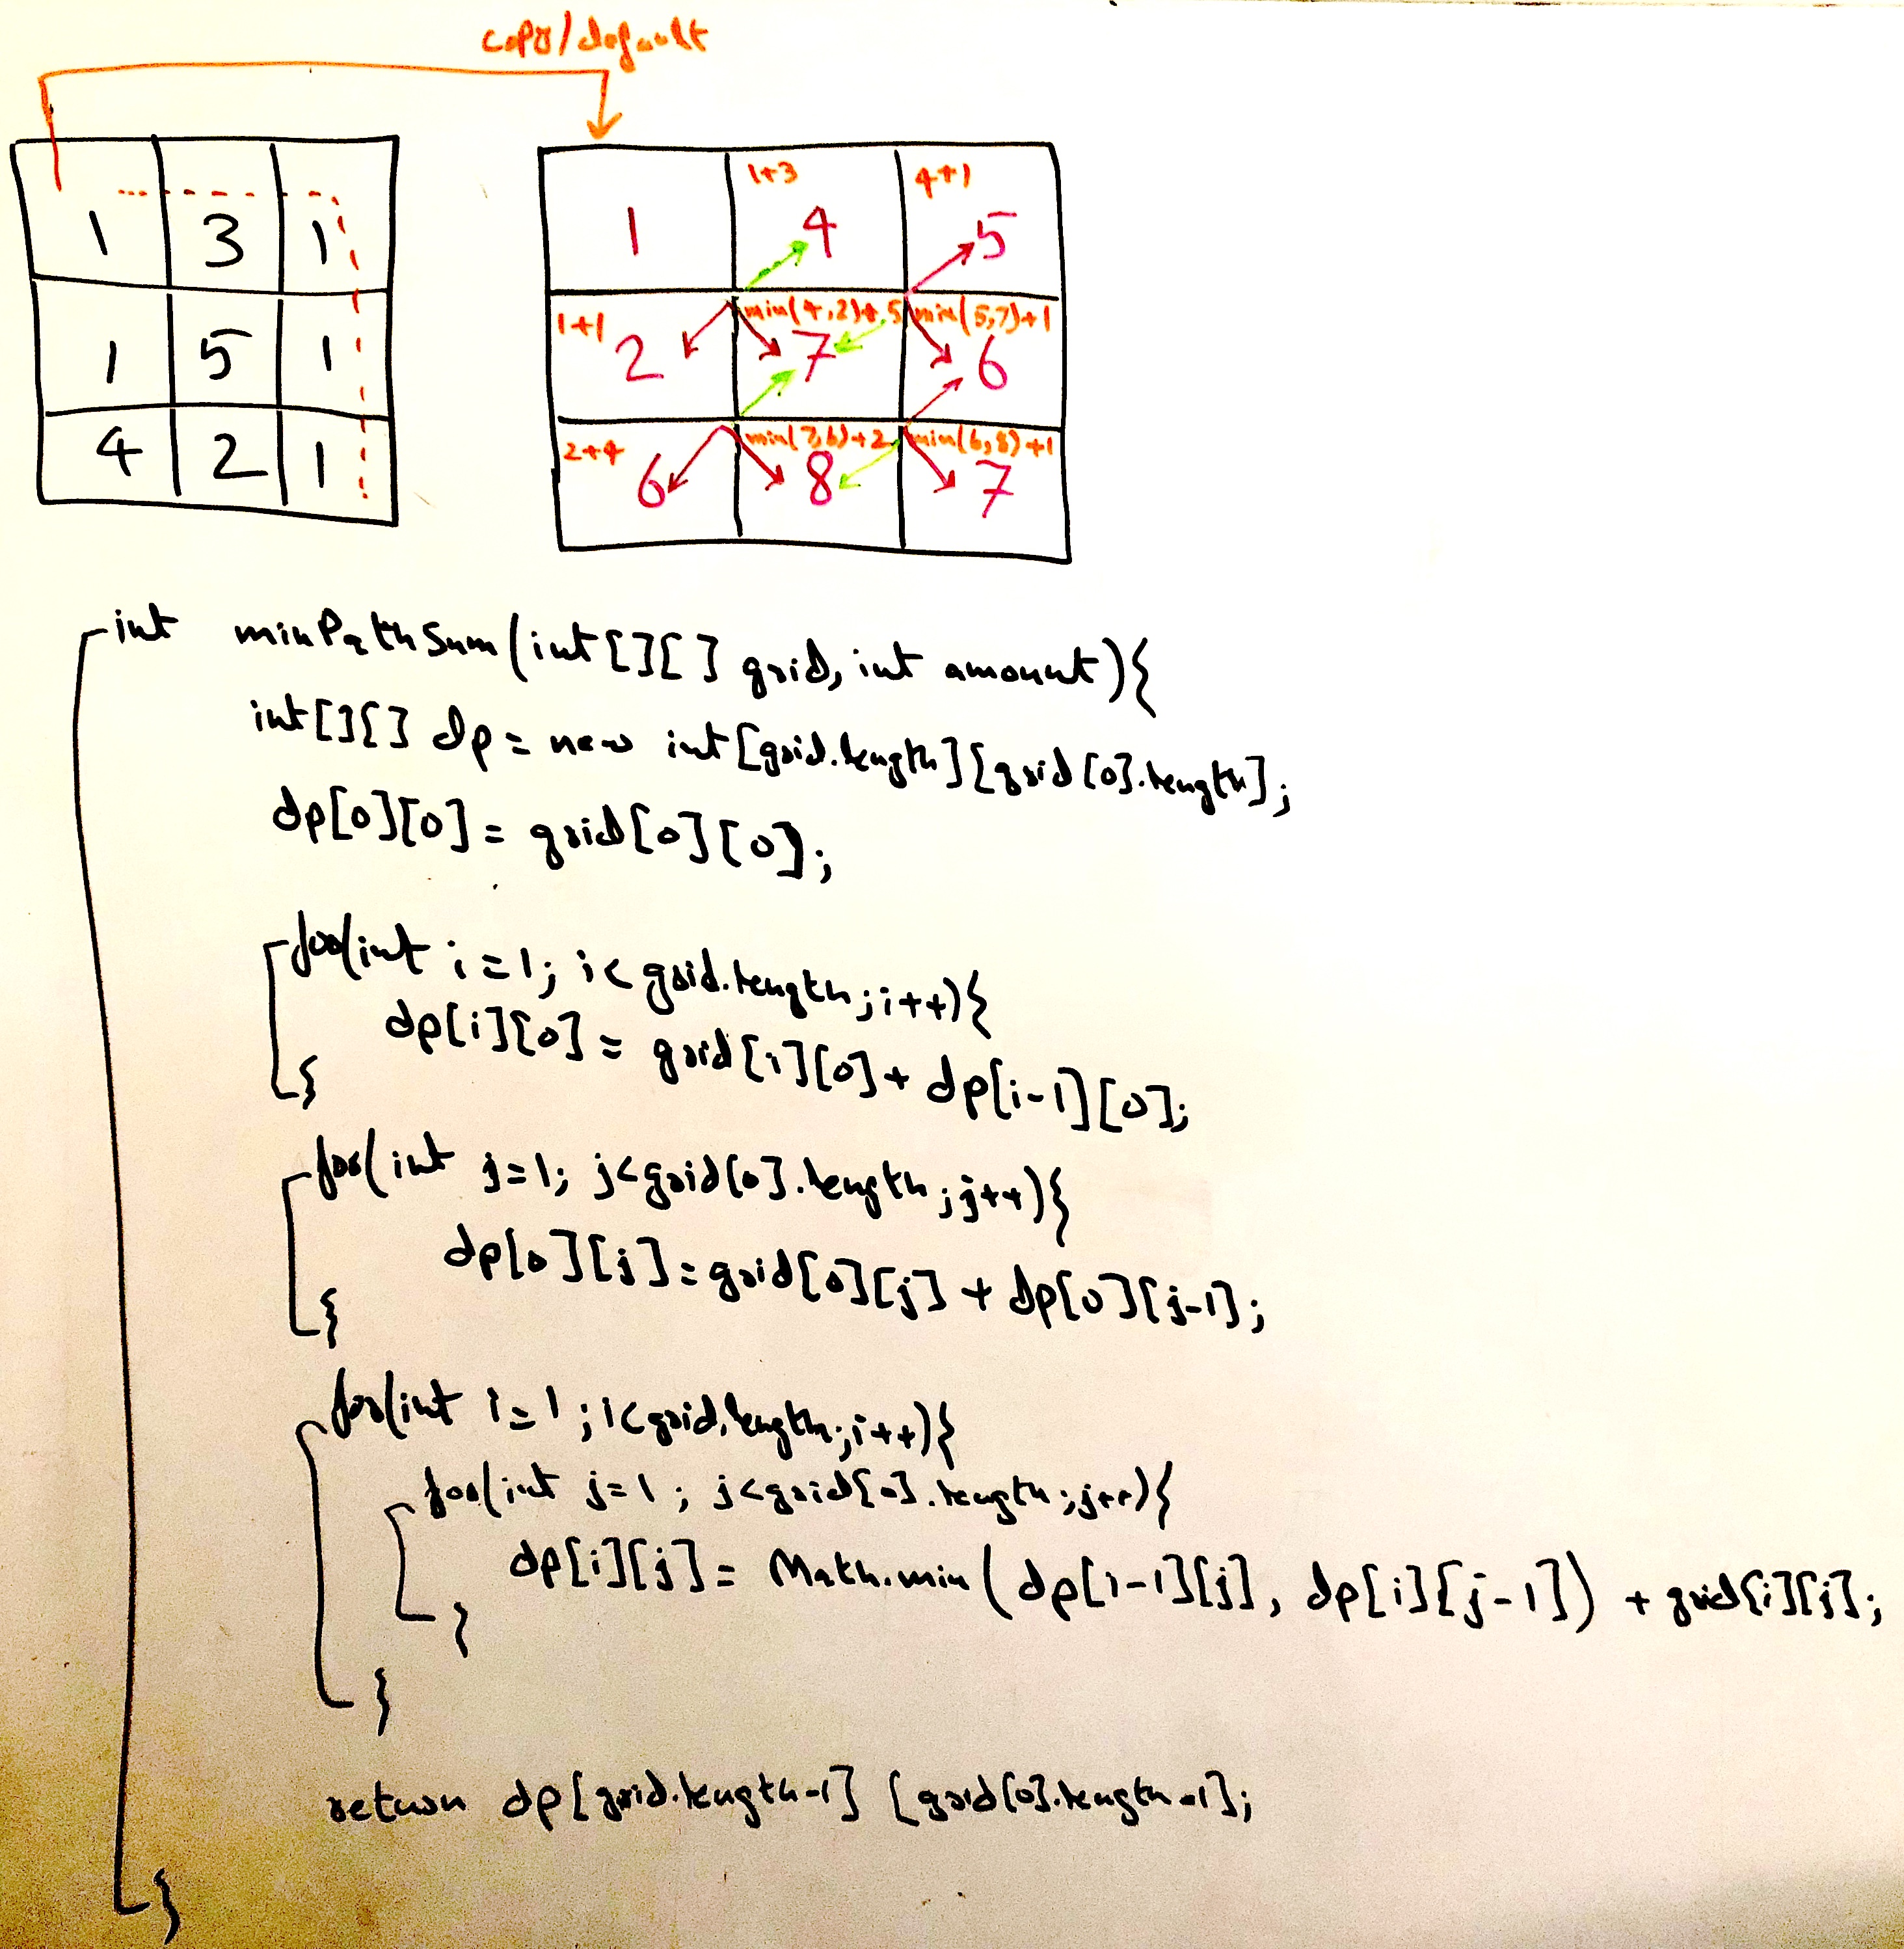 copy/default
1 3 1
1 5 1
4 2 1
1+3 4+1
1 4 5
1+1 min(4,2)+5 min(5,7)+1
2 7 6
2+4 min(7,6)+2 min(6,8)+1
6 8 7
int minPathSum(int[][] grid, int amount){
int[][] dp = new int[grid.length][grid[0].length];
dp[0][0] = grid[0][0];
for(int i=1; i<grid.length; i++){
dp[i][0] = grid[i][0] + dp[i-1][0];
}
for(int j=1; j<grid[0].length; j++){
dp[0][j] = grid[0][j] + dp[0][j-1];
}
for(int i=1; i<grid.length; i++){
for(int j=1; j<grid[0].length; j++){
dp[i][j] = Math.min(dp[i-1][j], dp[i][j-1]) + grid[i][j];
}
}
return dp[grid.length-1][grid[0].length-1];
}